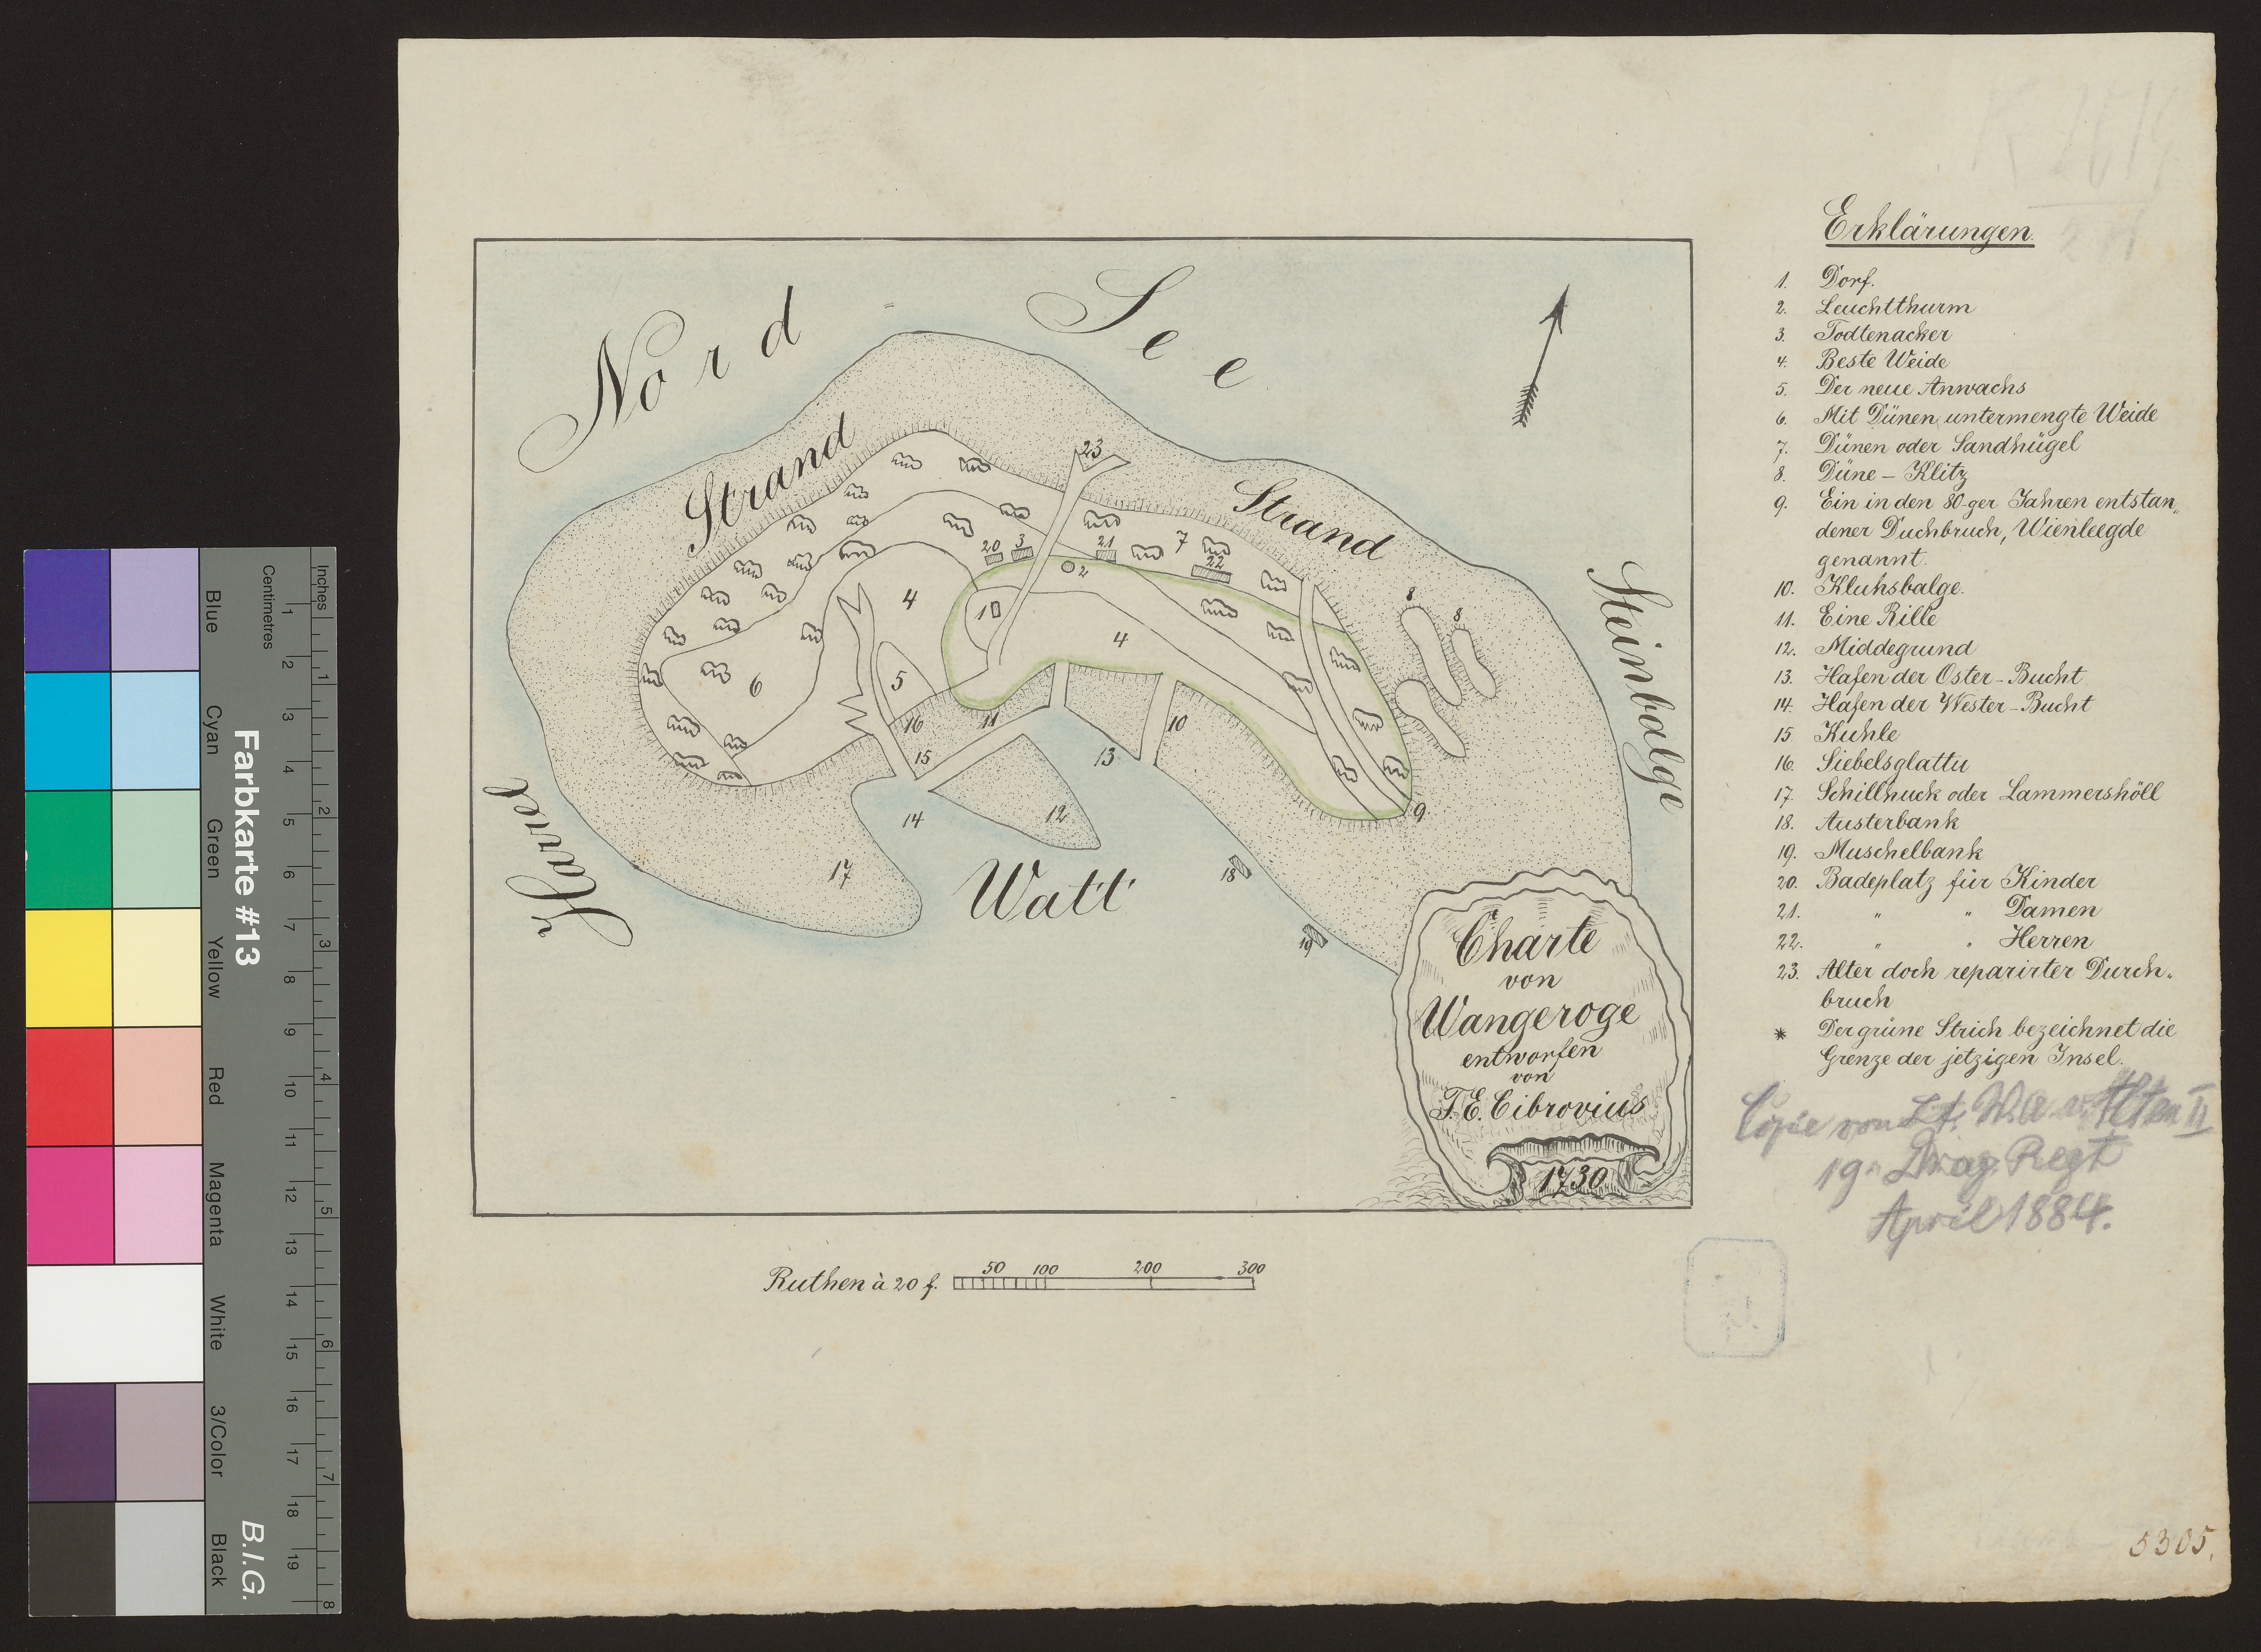 Erklärungen.
1. Dorf.
2. Leuchtthurm
3. Todtenacker
4. Beste Weide
5. Der neue Anwachs
6. Mit Dünen untermengte Weide
7. Dünen oder Sandhügel
8. Düne - Klitz
9. Ein in den 80-ger Jahren entstan„
dener Duchbruch, Wienleegde
genannt.
10. Kluhsbalge.
11. Eine Rille
12. Middegrund
13. Hafen der Oster-Bucht
14. Hafen der Wester-Bucht
15. Kuhle
16. Siebelsglattu
17. Schillhuck oder Lammershöll
18. Austerbank
19. Muschelbank
20. Badeplatz für Kinder
21. " " Damen
22. " " Herren
23. Alter doch reparirter Durch„
bruch
* Der grüne Strich bezeichnet die
Grenze der jetzigen Insel.
Copie von Lt. W.A. v. Alten II
19. Drag. Regt
April 1884.
5305.
Nord = See
Strand
Strand
Steinbalge
Harrel
Watt
23
20 3 21 7
22
2
1
4
4
5
6
8 8
16 11 10
15 13
14 12
17
9
18
19
Charte
von
Wangeroge
entworfen
von
F. E. Cibrovius
1730
Ruthen à 20 f. 50 100 200 300
Inches
Centimetres
1 2 3 4 5 6 7 8
1 2 3 4 5 6 7 8 9 10 11 12 13 14 15 16 17 18 19
Farbkarte #13
B.I.G.
Blue
Cyan
Green
Yellow
Red
Magenta
White
3/Color
Black